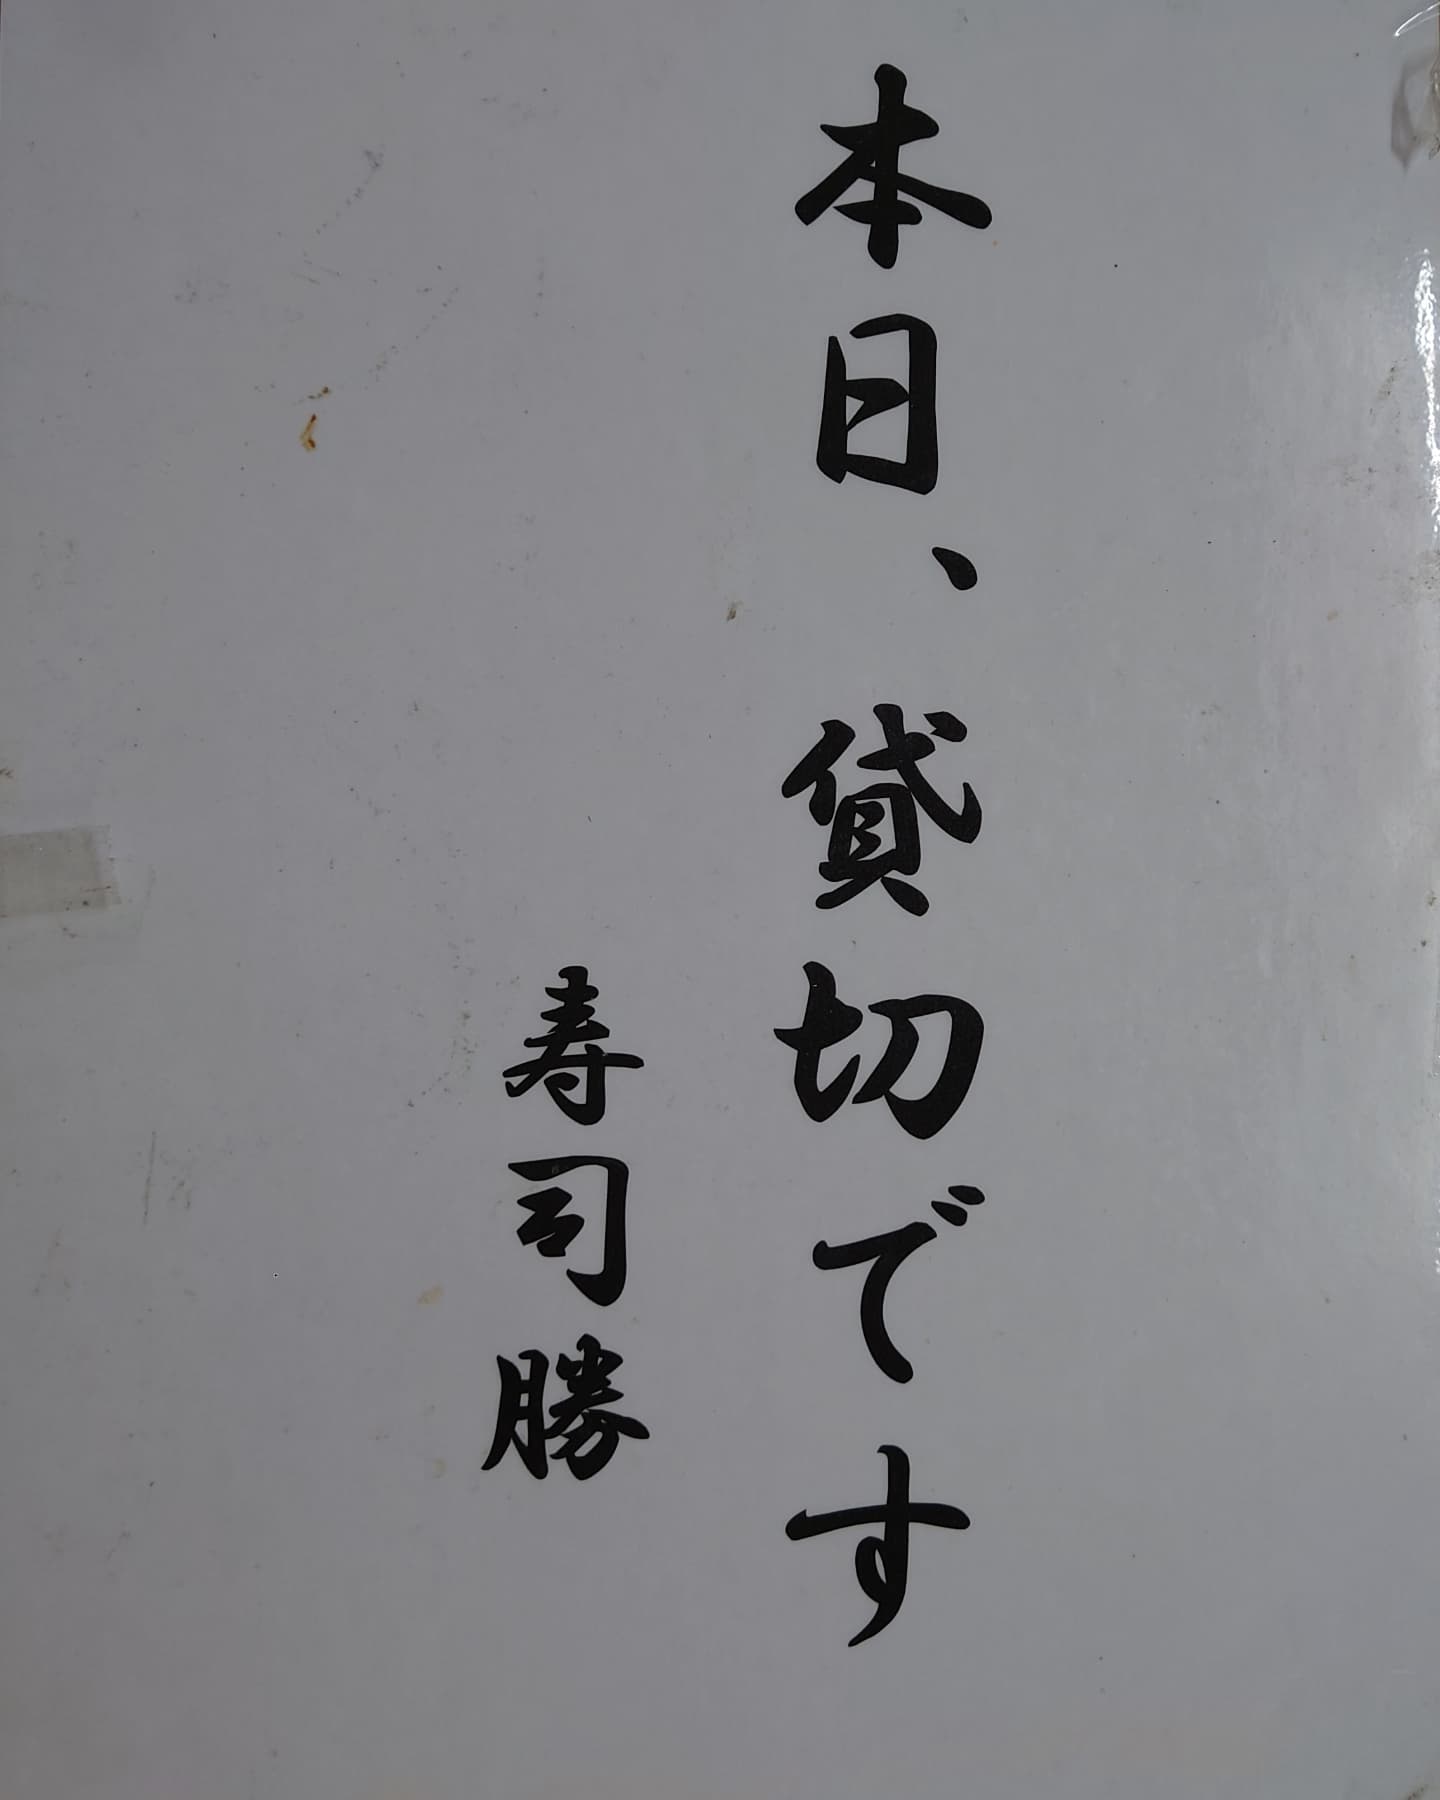 本日、貸切です
寿司勝